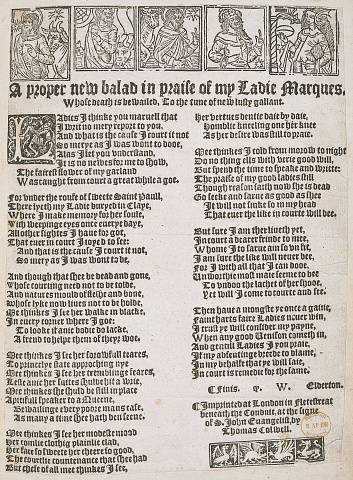 A proper new balad in praise of my Ladie Marques,
Whose death is bewailed, To the tune of new lusty gallant.
LAdies I thinke you maruell that
I writ no mery report to you,
And what is the cause I court it not
So merye as I was wont to dooe,
Alas I let you vnderstand,
It is no newes for me to show,
The fairest flower of my garland
Was caught from court a great while agoe.
For vnder the roufe of sweete Saint Paull,
There lyeth my Ladie buryed in Claye,
Where I make memory for her soule,
With weepinge eyes once euerye daye,
All other sightes I haue forgot,
That euer in court I ioyed to see:
And that is the cause I court it not,
So mery as I was wont to be.
And though that shee be dead and gone,
Whose courting need not to be tolde,
And natures mould of flesh and bone,
Whose lyke now liues not to be holde.
Mee thinkes I see her walke in blacke,
In euery corner where I goe:
To looke if anie bodie do lacke,
A frend to helpe them of theyr woe.
Mee thinkes I see her sorowfull teares,
To princelye state approching nye,
Mee thinkes I see her trembling feares,
Leste anie her suites shulde hit a wrie,
Mee thinkes she shuld be still in place
A pitifull speaker to a Queene,
Bewailinge every poore mans case,
As many a time shee hath ben seene.
Mee thinkes I see her modest mood
Her comlie clothing plainlie clad,
Her face so sweete her cheere so good,
The courtlie countenance that shee had
But chefe of all mee thinkes I see,
Her vertues deutie daie by daie,
Homblie kneeling one her knee
As her desire was still to praie.
Mee thinkes I cold from morow to night
Do no thing ells with verie good will,
But spend the time to speake and writte:
The praise of my good ladies still
Though reason saith now she is dead
Go seeke and farue as good as shee
It will not sinke so in my head
That euer the like in courte will bee.
But sure I am ther liueth yet,
In court a dearer frinde to mee,
Whome I to sarue am so vnfit,
I am sure the like will neuer bee,
For I with all that I can dooe,
Unworthie most maie seeme to bee
To vndoo the lachet of her shooe,
Yet will I come to courte and see.
Then haue amongste ye once a gaine,
Faint harts faire Ladies neuer win,
I trust ye will consider my payne,
When any good Venison cometh in,
And gentill Ladies I you praie,
If my absenting breede to blame,
In my behalfe that ye will saie,
In court is remedie for the same.
Finis. q. W. Elderton.
Imprinted at London in Fletestreat
beneath the Conduit, at the signe
of S. John Euangelist, by
Thomas Colwell.